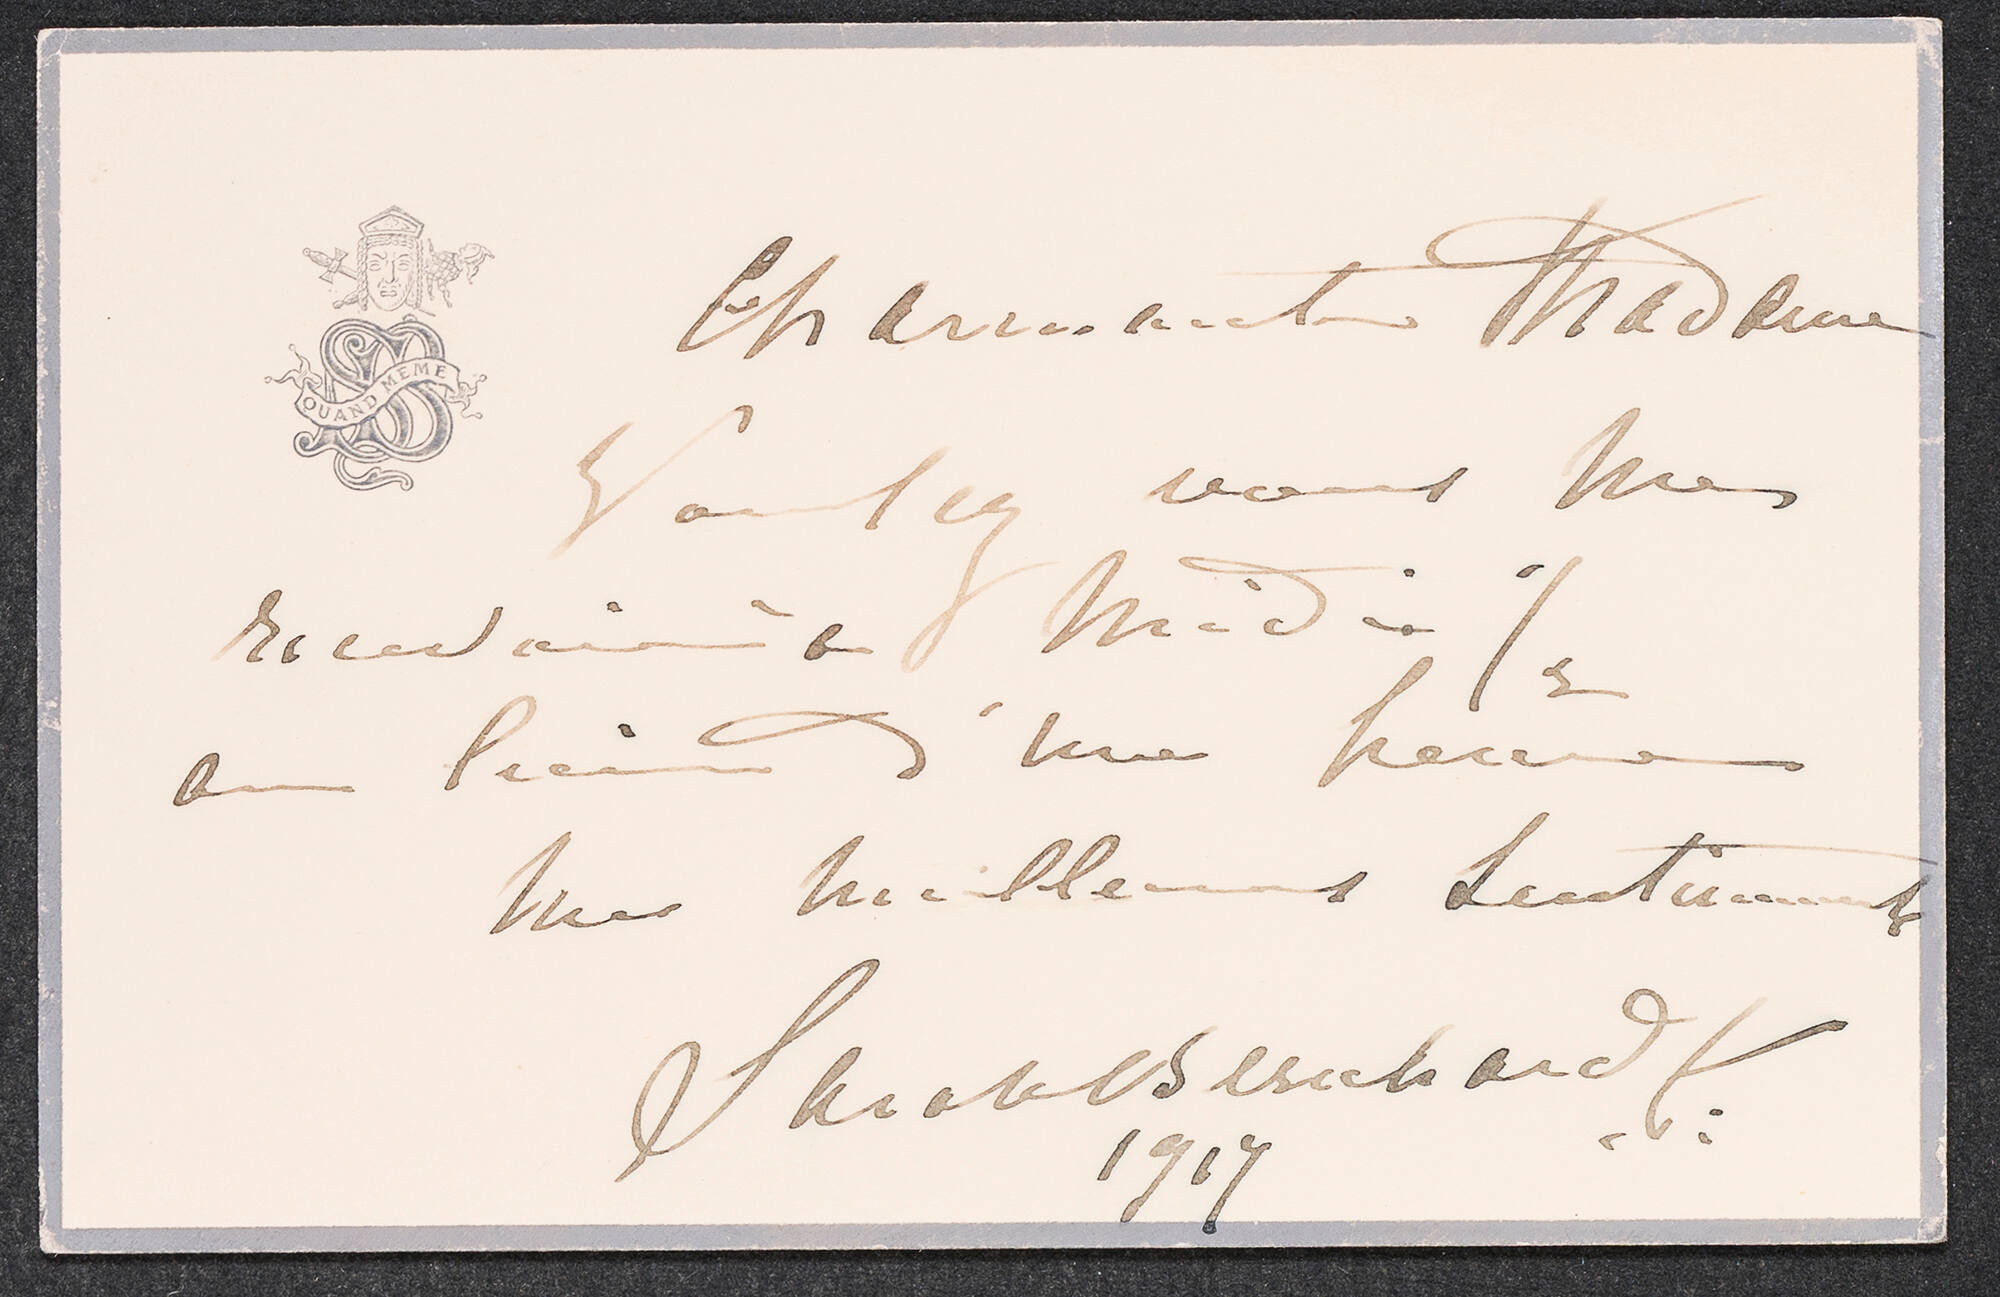 QUAND MEME
Charmante Madame
Voulez vous me
recevoir à Midi 1/2
au lieu d'une heure
Mes meilleurs sentiments
Sarah Bernhardt
1917